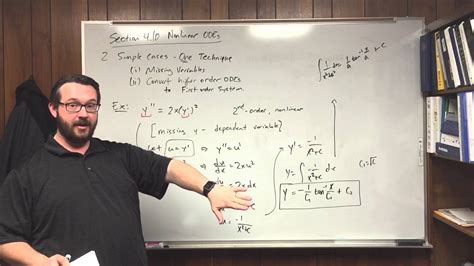 Section 4.10 Nonlinear ODEs
2 Simple Cases - One Technique
(i) Missing Variables
(ii) Convert higher order ODEs
to First order System
Ex: y'' = 2x(y')² 2nd-order, nonlinear
[missing y - dependent variable]
Let u = y' ⇒ y'' = u'
⇒ du/dx = 2xu²
2x dx
-1/x²+c
y' = -1/x²+c
y = ∫ -1/x²+c dx
C₁ = √c
y = -1/C₁ tan⁻¹ x/C₁ + C₂